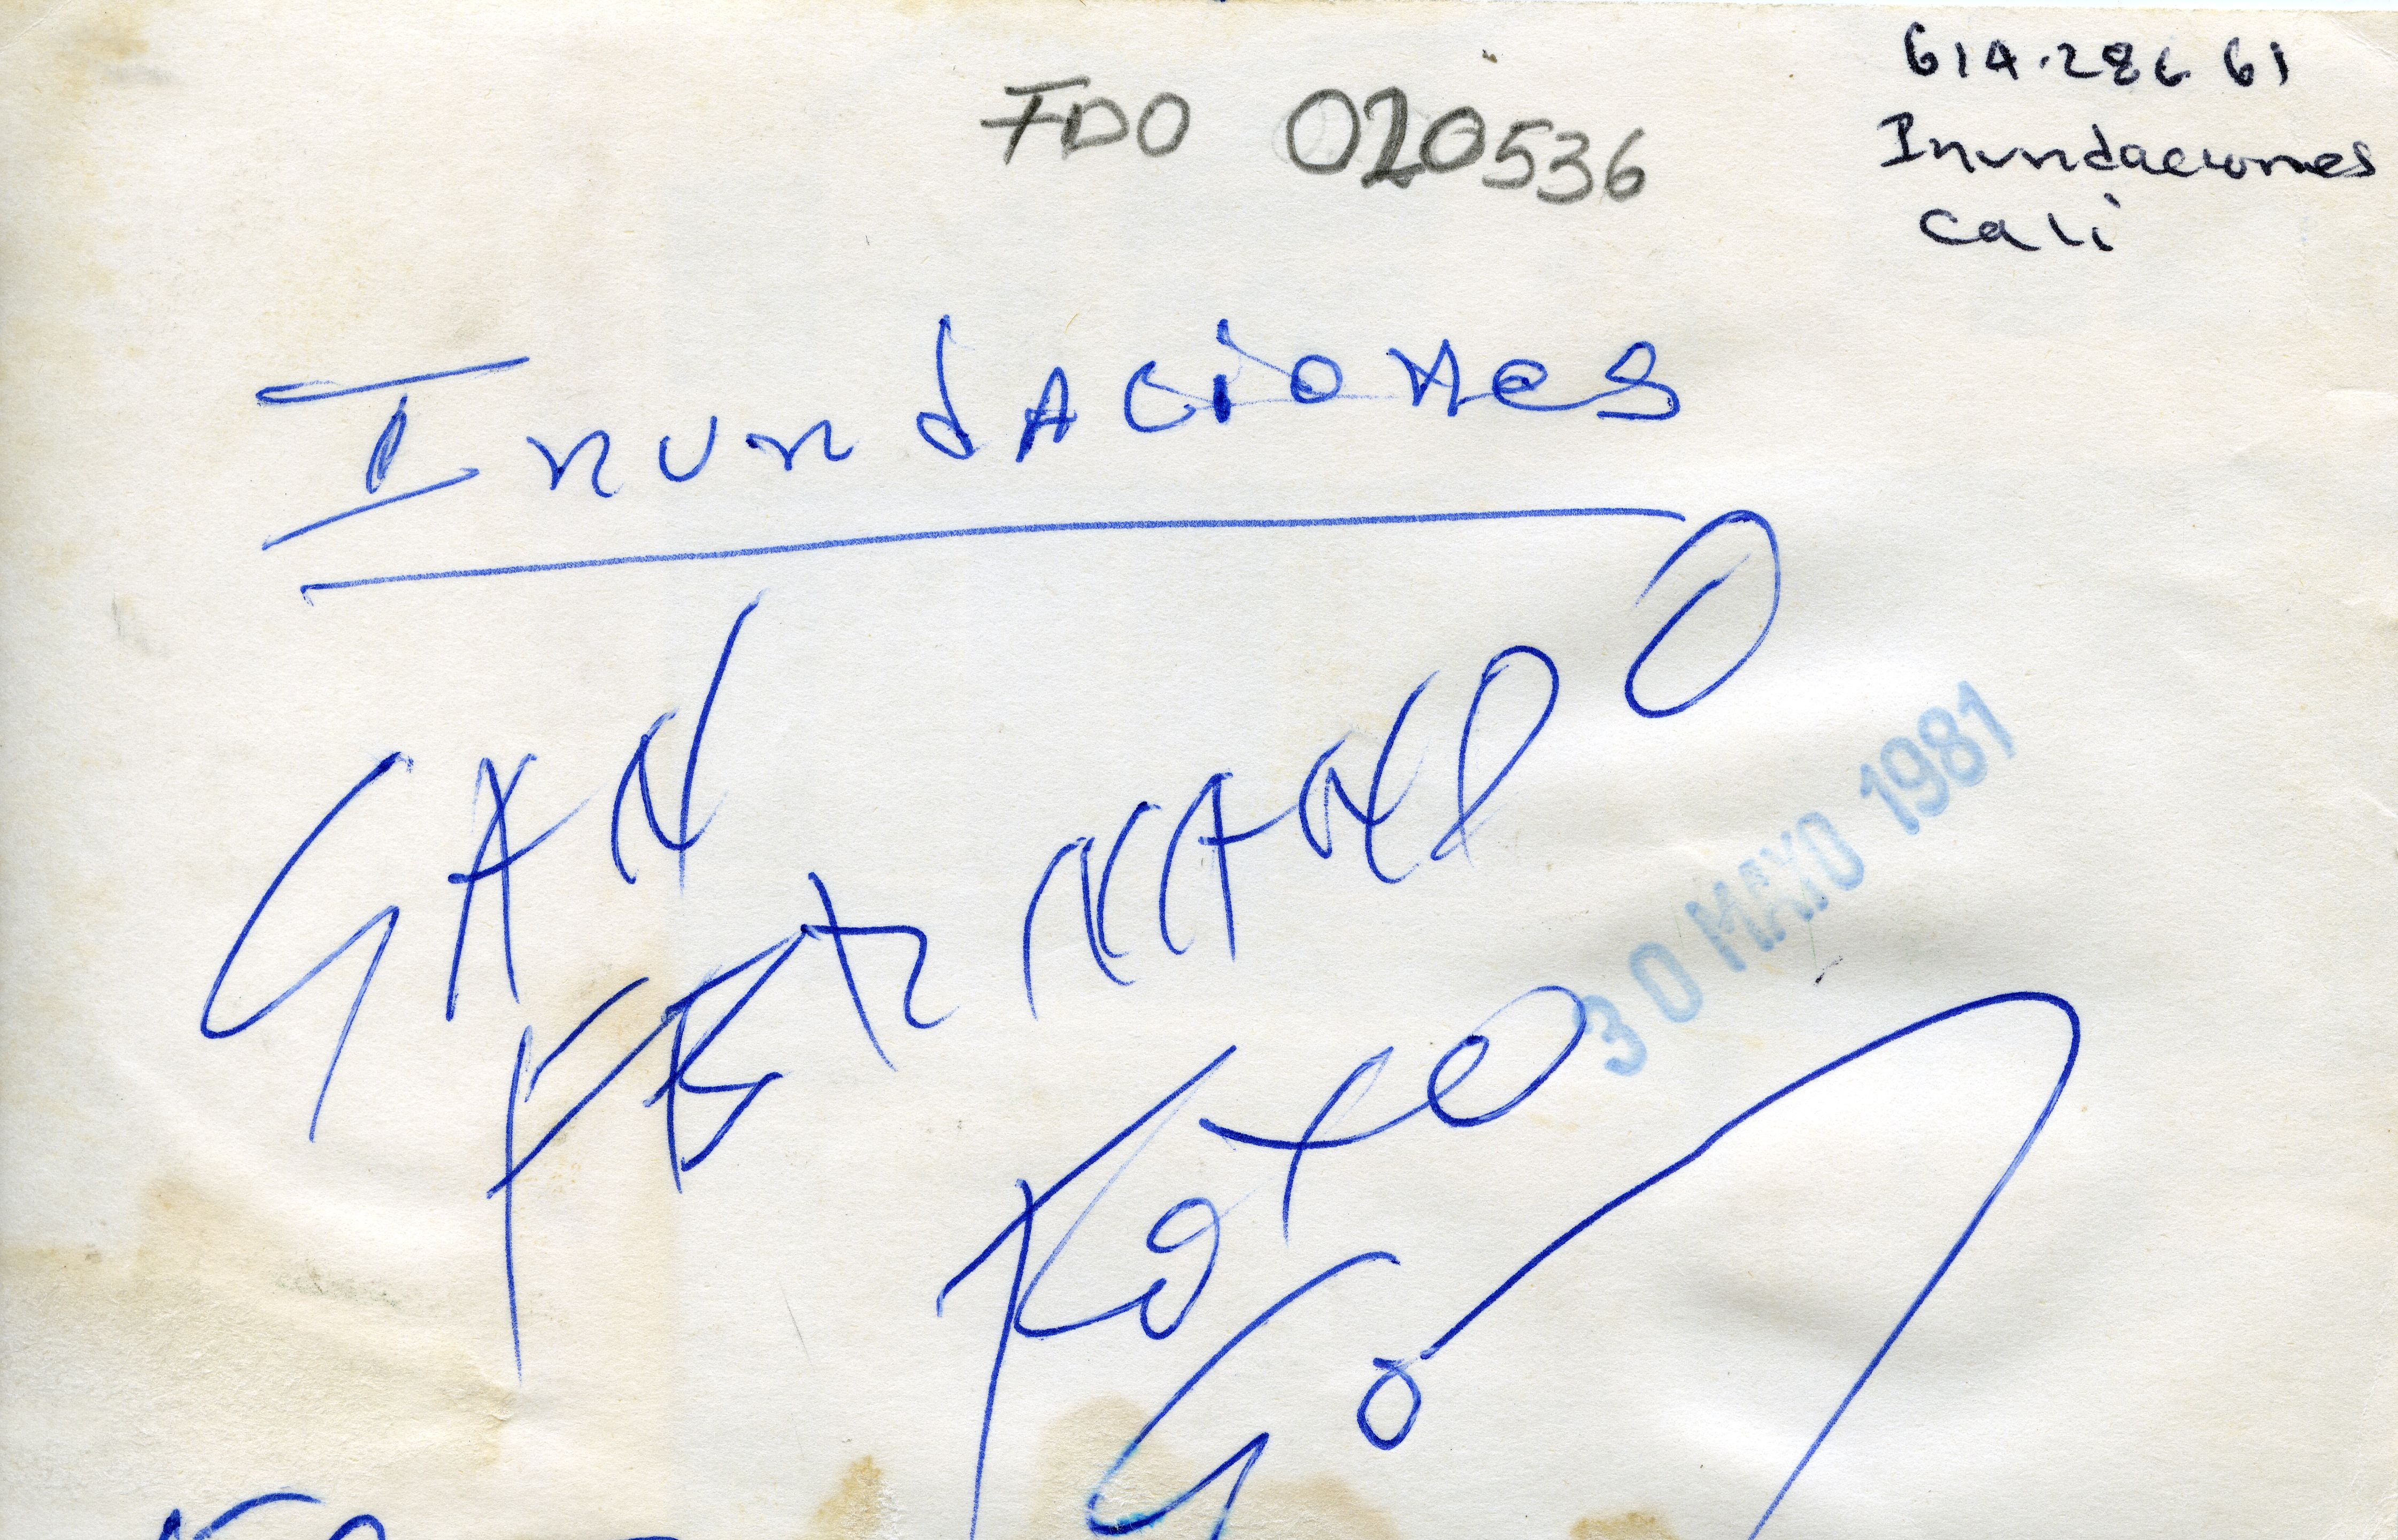 FDO 020536
614.286 61
Inundaciones
Cali
Inundaciones
SAN
FERNANDO
30 MAYO 1981
Foto